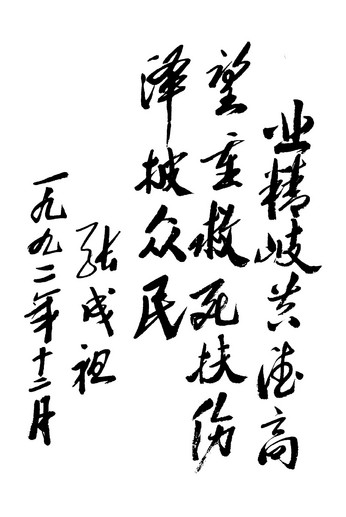 业精岐黄德高
望重救死扶伤
泽披众民
张成祖
一九九二年十二月